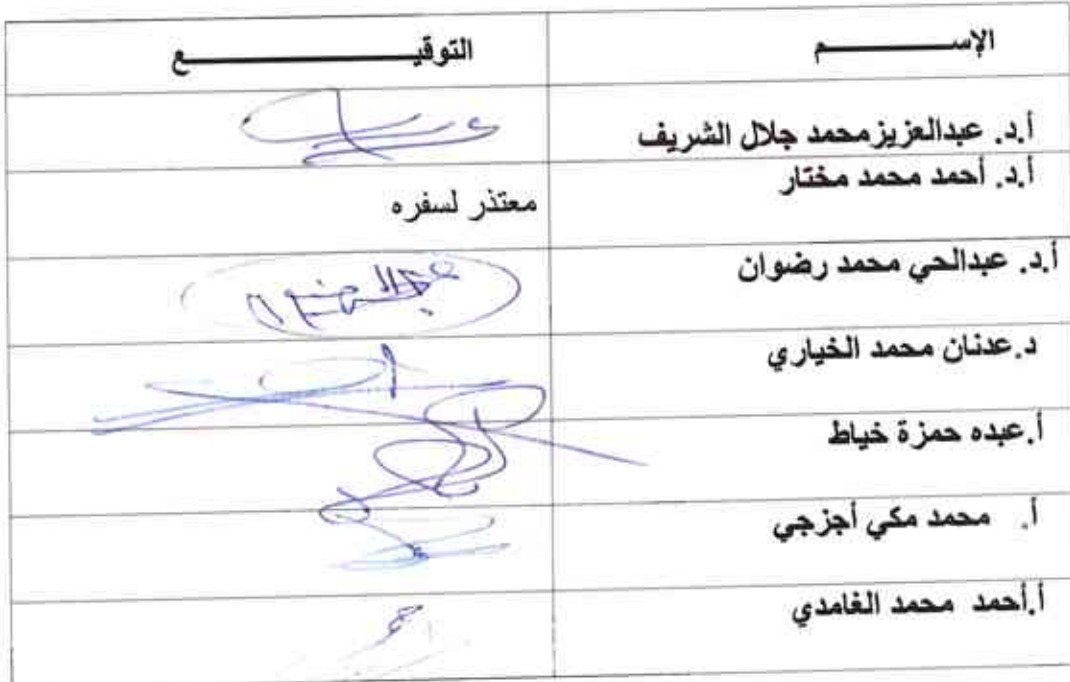 الإســـــــم التوقيـــــــــــع
أ.د. عبدالعزيزمحمد جلال الشريف
أ.د. أحمد محمد مختار معتذر لسفره
أ.د. عبدالحي محمد رضوان
د.عدنان محمد الخياري
أ.عبده حمزة خياط
أ. محمد مكي أجزجي
أ.أحمد محمد الغامدي